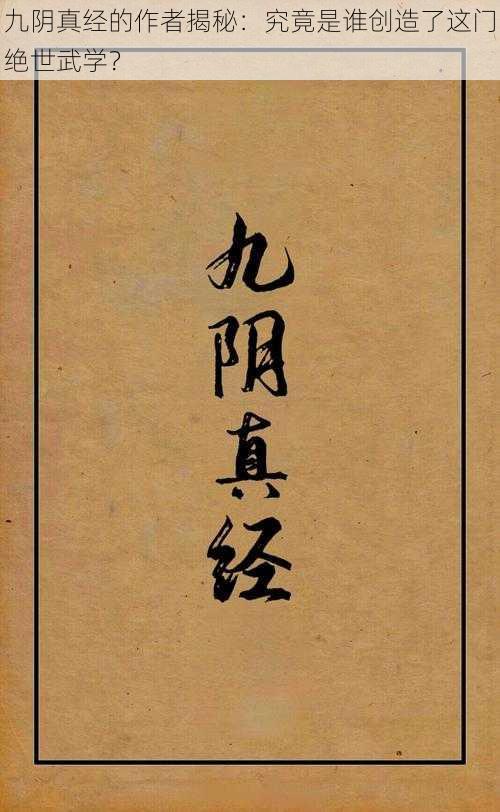 九阴真经的作者揭秘：究竟是谁创造了这门
绝世武学？
九阴真经